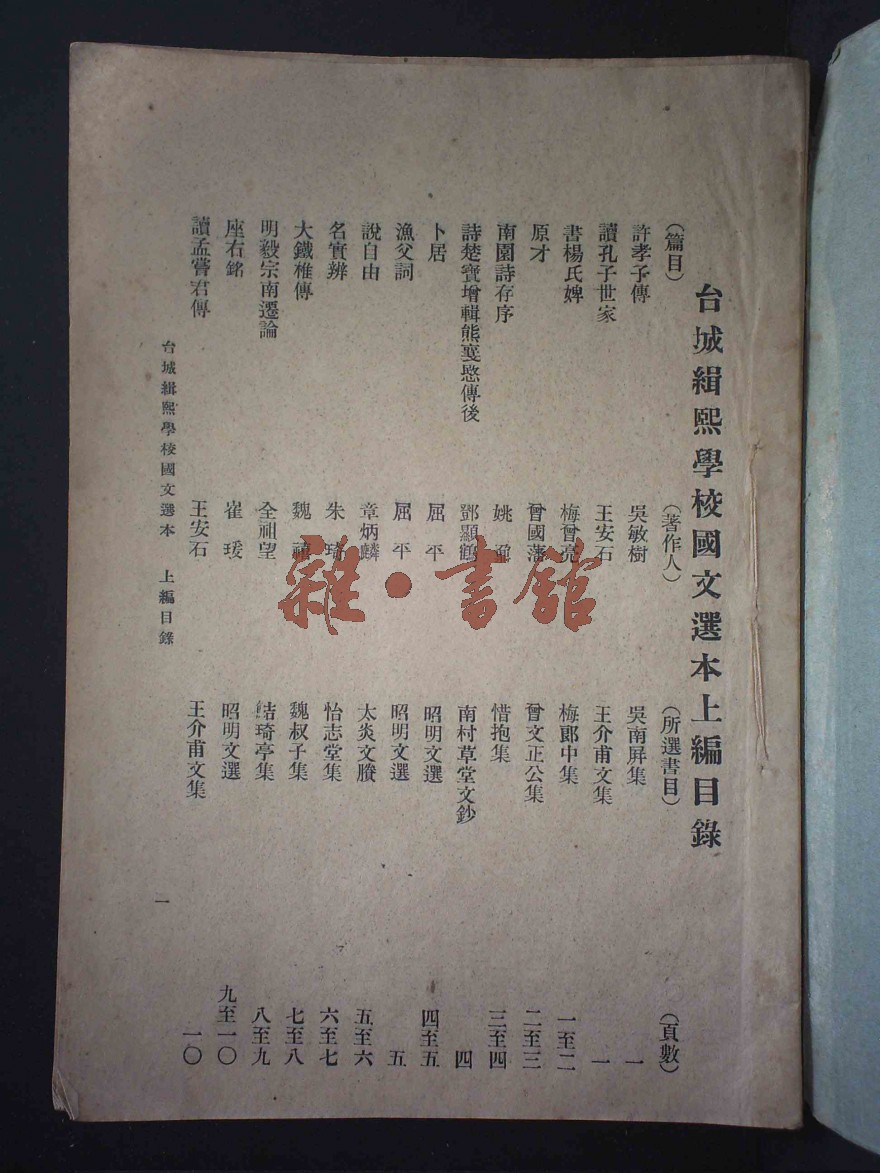 台城緝熙學校國文選本上編目錄
(篇目) (著作人) (所選書目) (頁數)
許孝子傳 吳敏樹 吳南屏集 一
讀孔子世家 王安石 王介甫文集 一
書楊氏婢 梅曾亮 梅郎中集 一至二
原才 曾國藩 曾文正公集 二至三
南園詩存序 姚鼐 惜抱集 三至四
詩楚寶增輯熊襄愍傳後 鄧顯鶴 南村草堂文鈔 四
卜居 屈平 昭明文選 四至五
漁父詞 屈平 昭明文選 五
說自由 章炳麟 太炎文賸 五至六
名實辨 朱琦 怡志堂集 六至七
大鐵椎傳 魏禧 魏叔子集 七至八
明毅宗南遷論 全祖望 鮚琦亭集 八至九
座右銘 崔瑗 昭明文選 九至一〇
讀孟嘗君傳 王安石 王介甫文集 一〇
台城緝熙學校國文選本 上編目錄 一
雜·書館